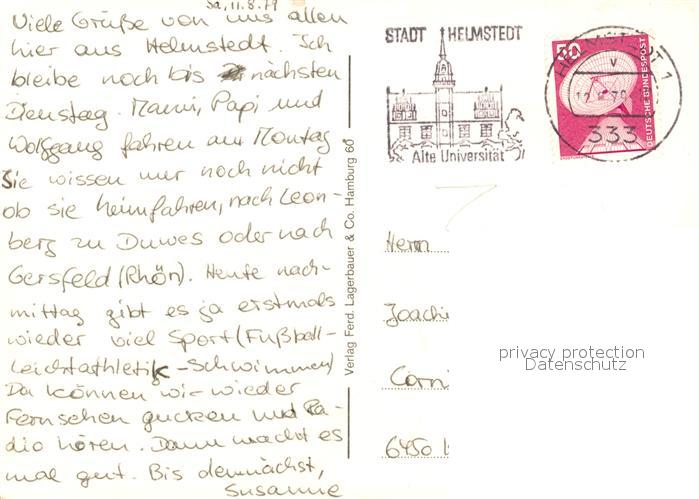 Sa, 11.8.79
Viele Grüße von uns allen
hier aus Helmstedt. Ich
bleibe noch bis nächsten
Dienstag. Mami, Papi und
Wolfgang fahren am Montag
Sie wissen nur noch nicht
ob sie heimfahren, nach Leon-
berg zu Duwes oder nach
Gersfeld (Rhön). Heute nach-
mittag gibt es ja erstmals
wieder viel Sport (Fußball-
Leichtathletik-Schwimmen)
Da können wir wieder
Fernsehen gucken und Ra-
dio hören. Dann macht es
mal gut. Bis demnächst,
Susanne
Verlag Ferd. Lagerbauer & Co. Hamburg 60
STADT HELMSTEDT
Alte Universität
HELMSTEDT 1
v
333
50
DEUTSCHE BUNDESPOST
Herrn
Joachi
Corni
6450
privacy protection
Datenschutz